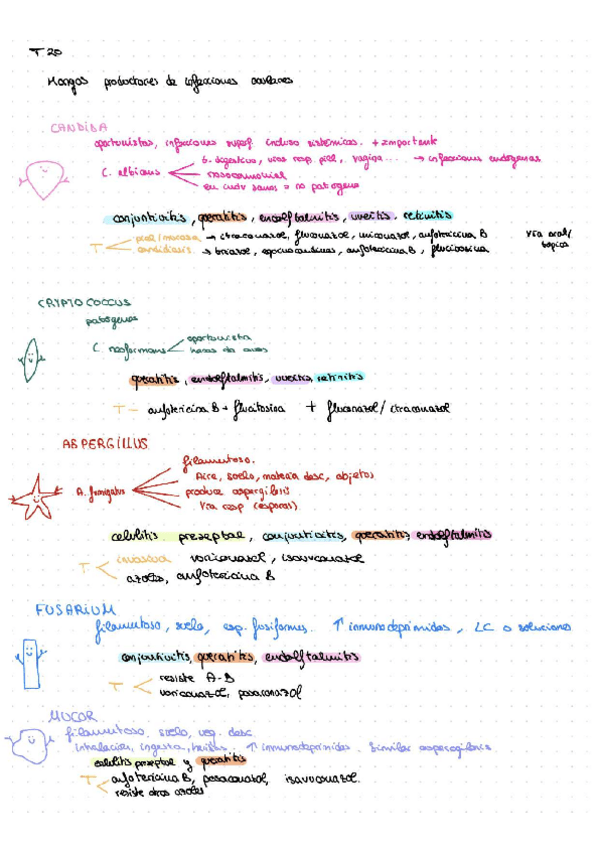 T 20
Hongos productores de infecciones oculares
CANDIDA
oportunistas, infecciones superf. incluso sistémicas. + importante
C. albicans
S. digestivo, vías resp. piel, vagina... → infecciones endógenas
nosocomial
En indv sanos → no patógena
conjuntivitis, queratitis, endoftalmitis, uveitis, retinitis
T
piel/mucosa → itraconazol, fluconazol, miconazol, anfotericina B
vía oral/
tópica
candidiasis → triazol, equinocandinas, anfotericina B, flucitosina
CRYPTOCOCCUS
patógenas
C. neoformans
oportunista
heces de aves
queratitis, endoftalmitis, uveitis, retinitis
T - anfotericina B + flucitosina + fluconazol/itraconazol
ASPERGILLUS
A. fumigatus
filamentoso.
Aire, suelo, materia desc, objetos
produce aspergilosis
Vía resp (esporas)
celulitis preseptal, conjuntivitis, queratitis, endoftalmitis
T
invasiva voriconazol, isavuconazol
azoles, anfotericina B
FUSARIUM
filamentoso, suelo, esp. fusiformes. ↑ inmunodeprimidos, LC o soluciones
conjuntivitis, queratitis, endoftalmitis
T
resiste A-B
voriconazol, posaconazol
MUCOR
filamentoso. suelo, veg. desc.
inhalación, ingesta, heridas. ↑ inmunodeprimidos. Similar aspergilosis.
celulitis preseptal y queratitis
T
anfotericina B, posaconazol, isavuconazol.
resiste otros azoles